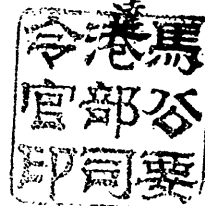 馬公要
港部司
令官印